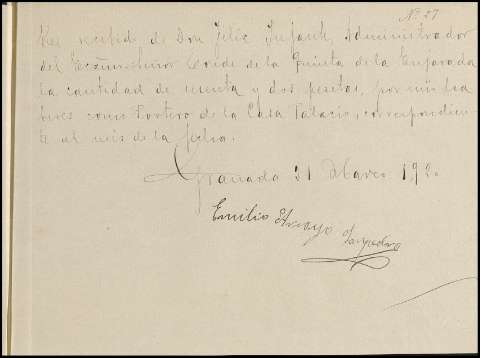 Nº 27
He recibido de Don Felix Infante, Administrador
del Excmo Señor Conde de la Quinta de la Enjarada
la cantidad de y dos pesetas, por mis ha
beres como Portero de la Casa Palacio, correspondien
te al mes de la fecha.
Granada 31 Marzo 192
Emilio Arroyo